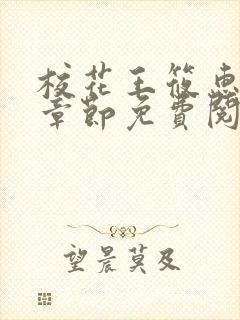 校花王筱惠
章節免費閱
望晨莫及